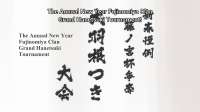 The Annual New Year
Fujinomiya Clan
Grand Hanetsuki
Tournament
The Annual New Year Fujinomiya Clan
Grand Hanetsuki Tournament
新春恒例
藤ノ宮杯争奪
大羽根つき
大会